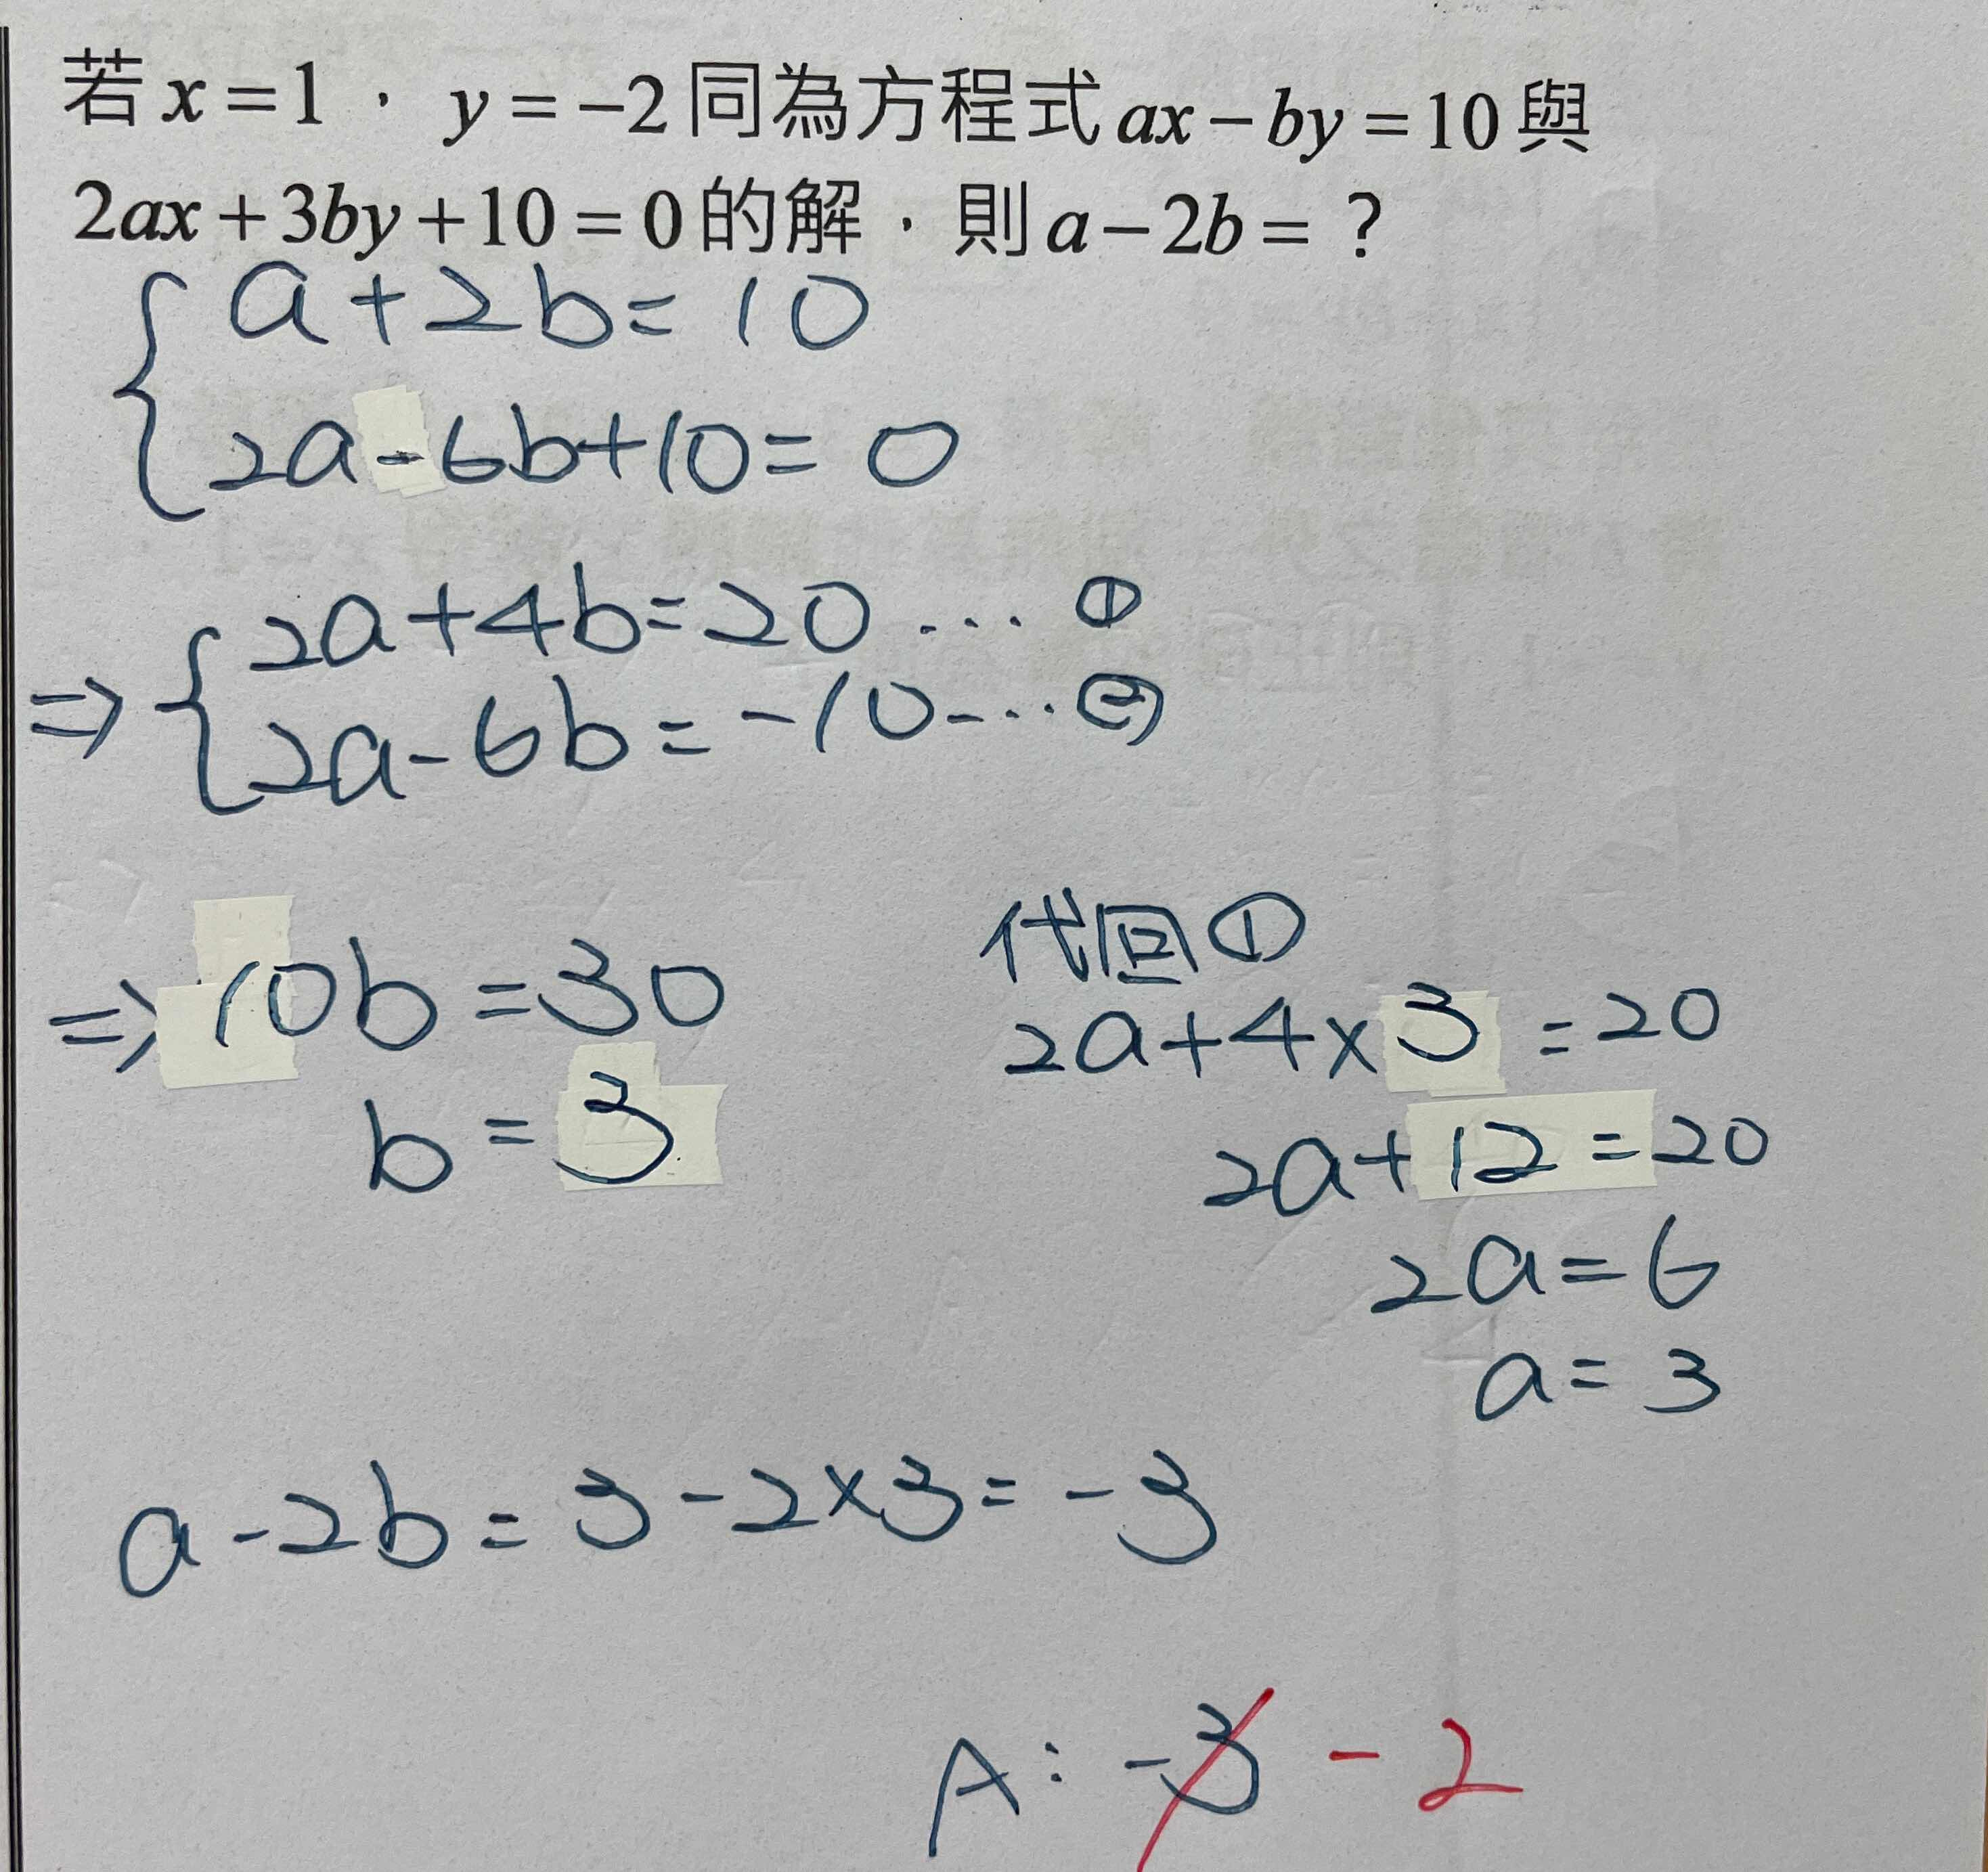 若 x = 1 , y = −2 同為方程式 ax − by = 10 與
2ax + 3by + 10 = 0 的解 , 則 a − 2b = ?
a + 2b = 10
2a - 6b + 10 = 0
2a + 4b = 20 ... ①
⇒ 2a - 6b = -10 ... ②
⇒ 10b = 30
b = 3
代回①
2a + 4 × 3 = 20
2a + 12 = 20
2a = 6
a = 3
a - 2b = 3 - 2 × 3 = -3
A : -3 - 2